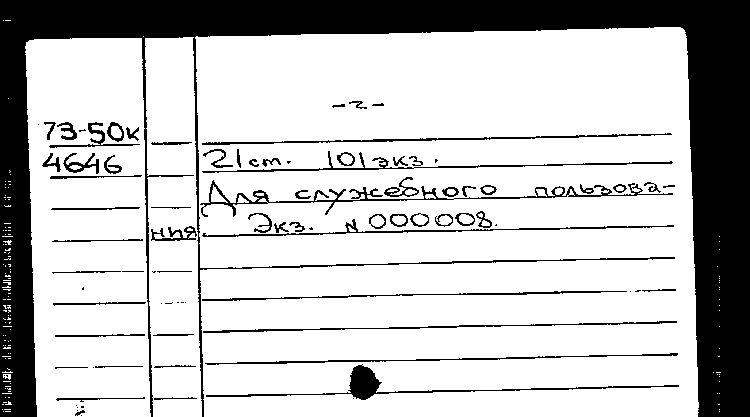 -2-
73-50к
4646 21 cm. 101 экз.
Для служебного пользова-
ния. Экз. N 000008.